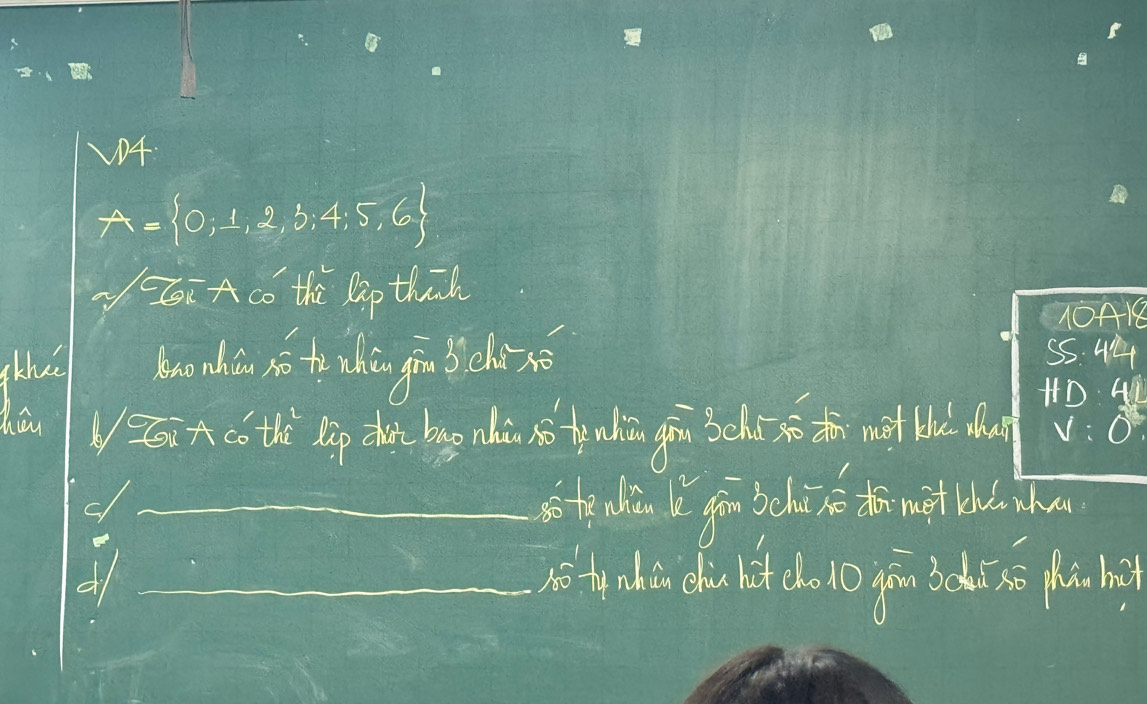 VD4.
A = {0; 1, 2, 3; 4; 5, 6}.
a/ Từ A có thể lập thành
bao nhiêu số tự nhiên gồm 3 chữ số
b/ Từ A có thể lập được bao nhiêu số tự nhiên gồm 3 chữ số đôi một khác nhau
c/ số tự nhiên lẻ gồm 3 chữ số đôi một khác nhau.
d/ số tự nhiên chia hết cho 10 gồm 3 chữ số phân biệt
gkhác
hiên
10A18
SS: 44
HD: 4
V: 0